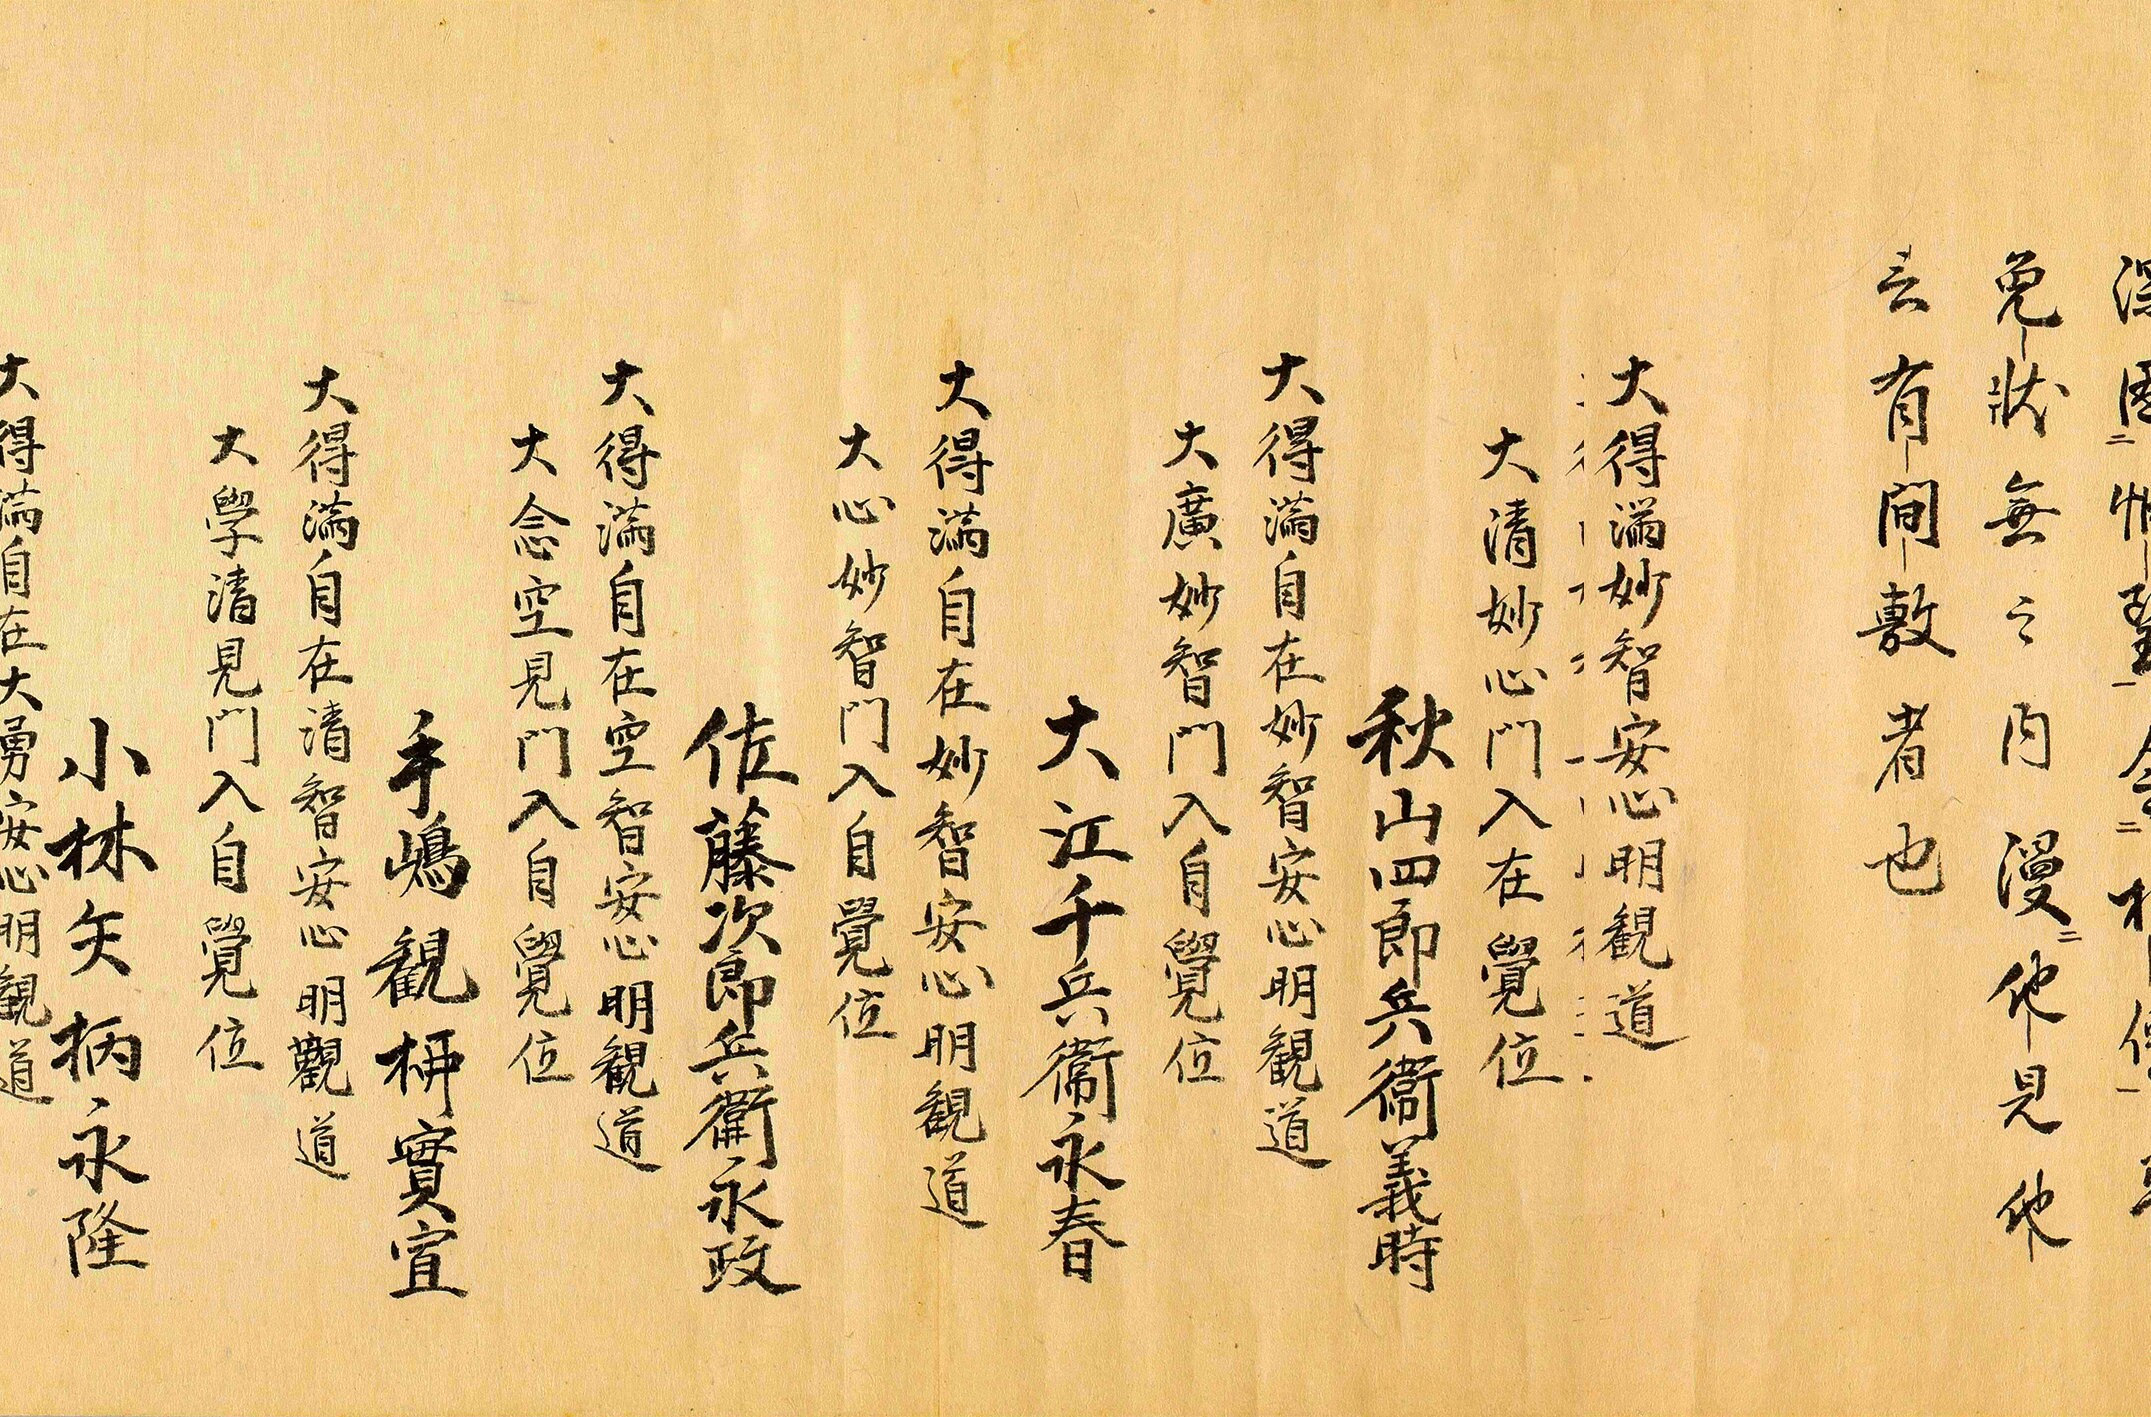 免状無之内漫二他見他
言有間敷者也
大得満妙智安心明観道
大清妙心門入在覺位
秋山四郎兵衞義時
大得満自在妙智安心明観道
大廣妙智門入自覺位
大江千兵衞永春
大得満自在妙智安心明観道
大心妙智門入自覺位
佐藤次郎兵衞永政
大得満自在空智安心明観道
大念空見門入自覺位
手嶋観柳實宣
大得満自在清智安心明觀道
大學清見門入自覺位
小林矢柄永隆
大得満自在大勇安心明観道